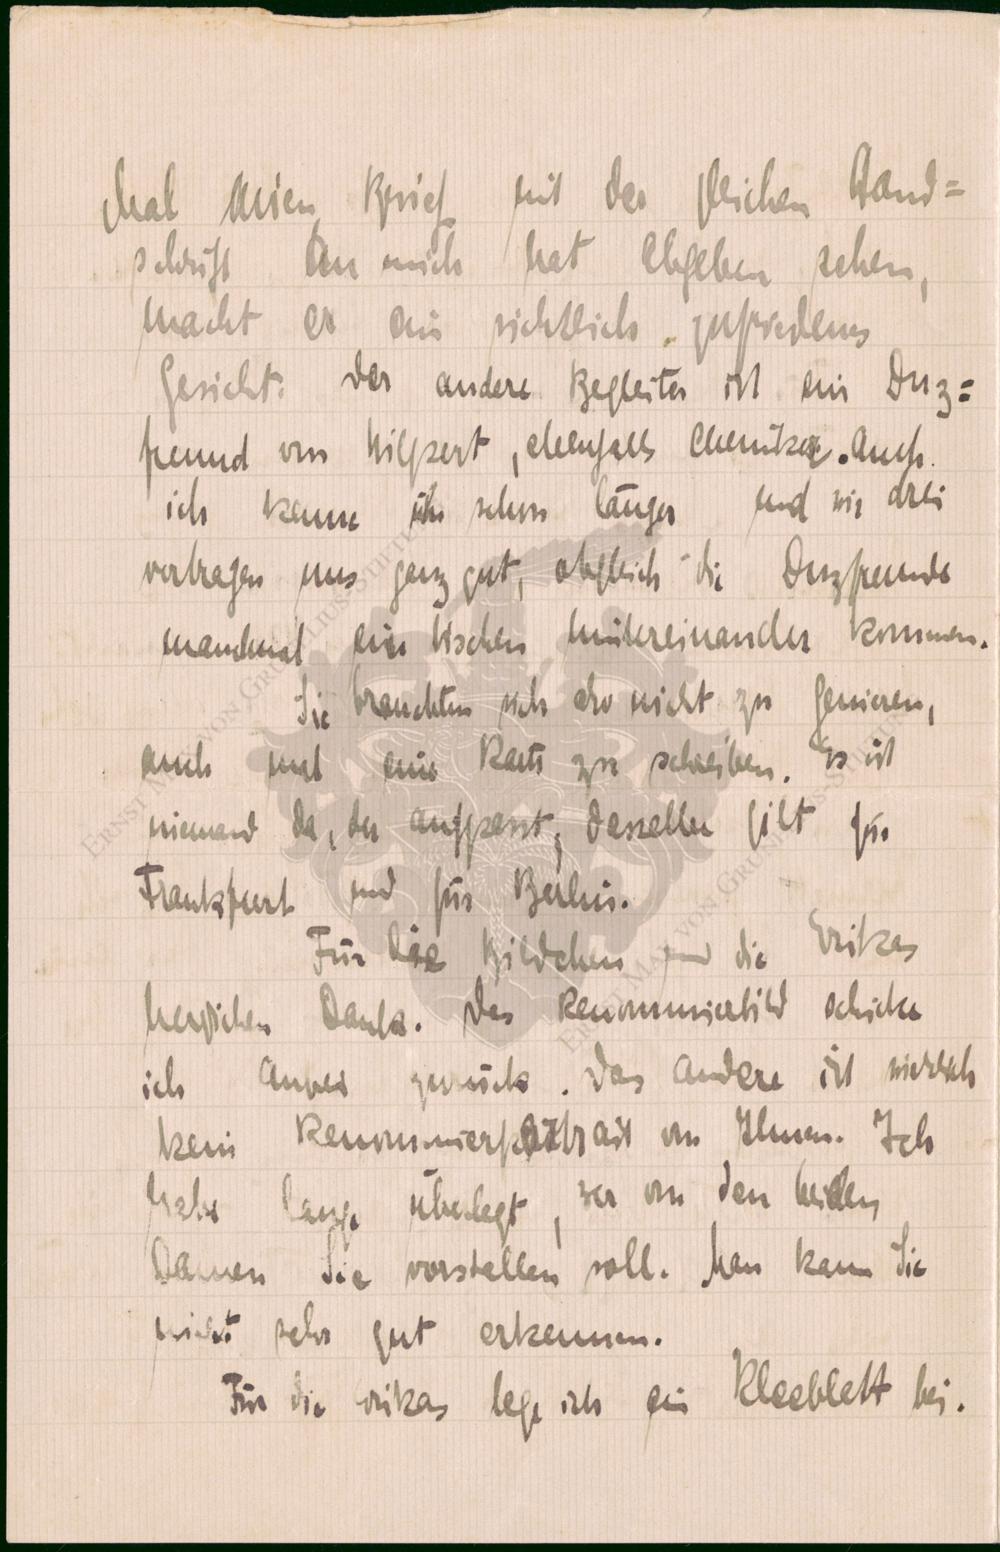 Mal einen Brief mit der gleichen Hand=
schrift an mich hat abgeben sehen,
macht er ein sichtlich zufriedenes
Gesicht. Der andere Begleiter ist ein Duz=
freund von Hilpert, ebenfalls Chemiker. Auch
ich kenne ihn schon länger und wir drei
vertragen uns ganz gut, obgleich die Duzfreunde
manchmal ein bischen hintereinander kommen.
Sie brauchten sich also nicht zu genieren,
auch mal eine Karte zu schreiben. Es ist
niemand da, der aufpasst; dasselbe gilt für
Frankfurt und für Berlin.
Für die Bildchen und die Erikas
herzlichen Dank. Das Renommierbild schicke
ich anbei zurück. Das andere ist wirklich
kein Renommierportrait von Ihnen. Ich
habe lange überlegt, wer von den beiden
Damen Sie vorstellen soll. Man kann Sie
nicht sehr gut erkennen.
Für die Erikas lege ich ein Kleeblatt bei.
ERNST MAX VON GRUNELIUS-STIFTUNG
ERNST MAX VON GRUNELIUS-STIFTUNG